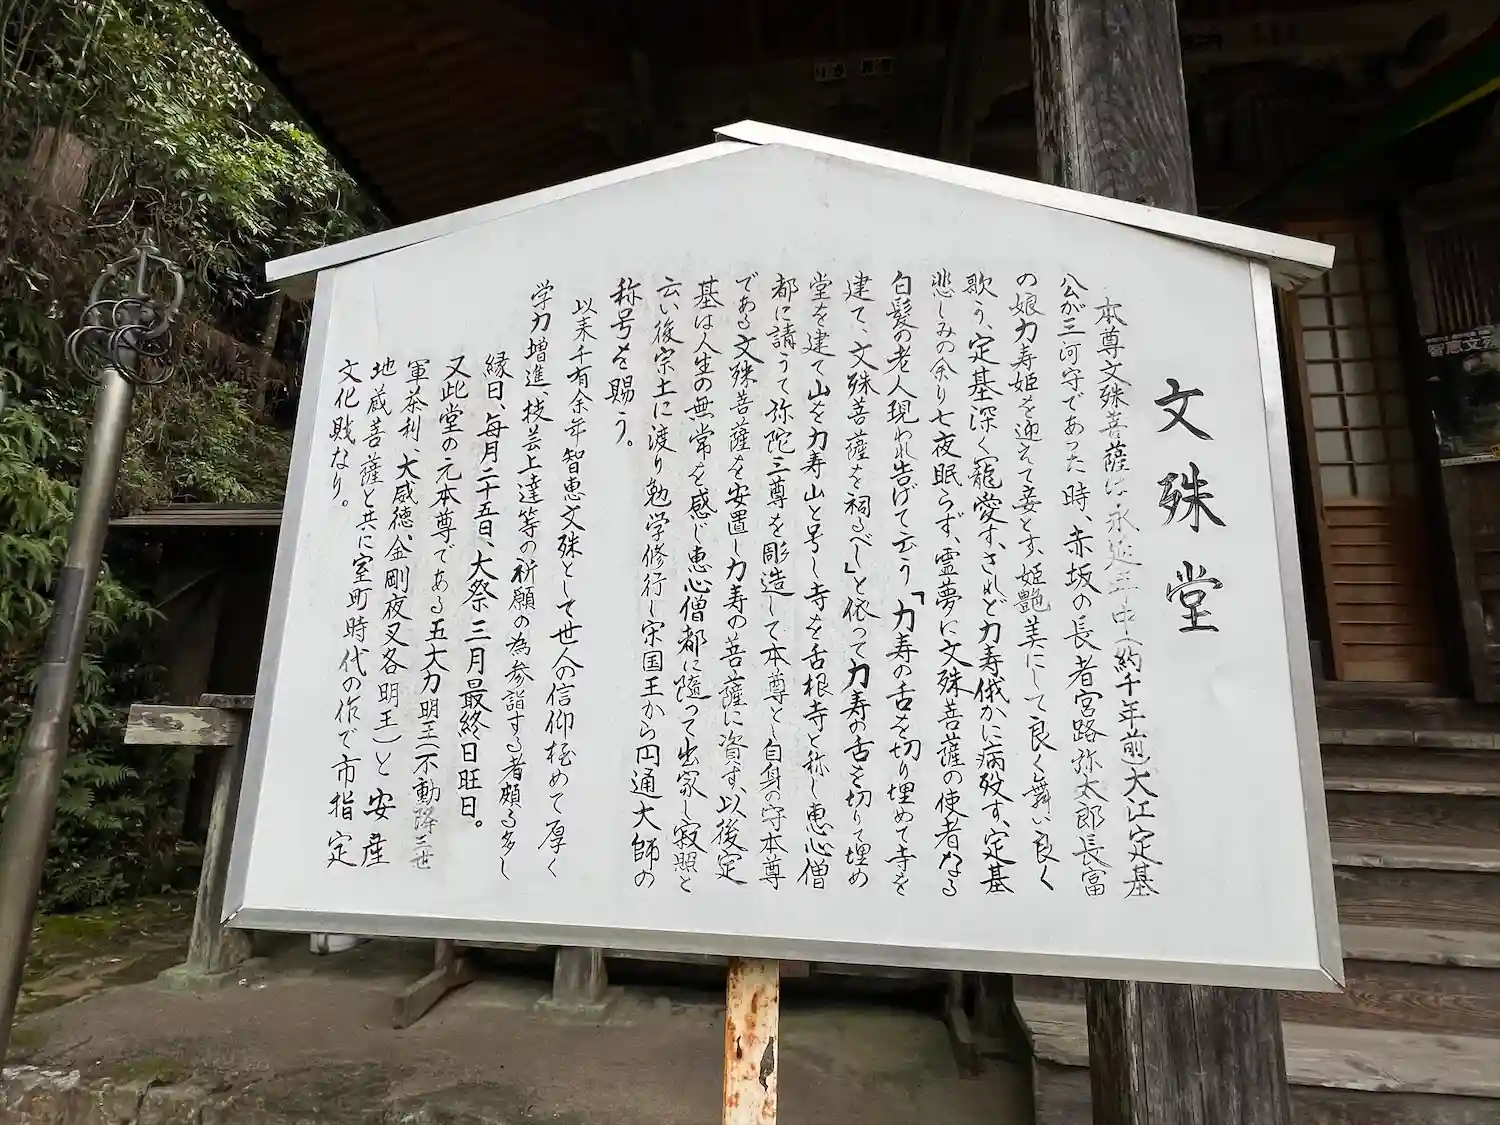 文殊堂
本尊文殊菩薩は永延年中(約千年前)大江定基
公が三河守であった時、赤坂の長者宮路弥太郎長富
の娘力寿姫を迎えて妾とす、姫艶美にして良く舞い良く
歌う、定基深く寵愛す、されど力寿俄かに病歿す、定基
悲しみの余り七夜眠らず、霊夢に文殊菩薩の使者なる
白髪の老人現われ告げて云う「力寿の舌を切り埋めて寺を
建て、文殊菩薩を祠るべし」と依って力寿の舌を切りて埋め
堂を建て山を力寿山と号し寺を舌根寺と称し恵心僧
都に請うて弥陀三尊を彫造して本尊とし自身の守本尊
である文殊菩薩を安置し力寿の菩薩に資す、以後定
基は人生の無常を感じ恵心僧都に随って出家し寂照と
云い後宗土に渡り勉学修行し宋国王から円通大師の
称号を賜う。
以来千有余年智恵文殊として世人の信仰極めて厚く
学力増進、技芸上達等の祈願の為参詣する者頗る多し
縁日、毎月二十五日、大祭 三月最終日旺日。
又此堂の元本尊である五大力明王(不動降三世
軍荼利、大威徳、金剛夜叉各明王)と安産
地蔵菩薩と共に室町時代の作で市指定
文化財なり。
智恵文殊